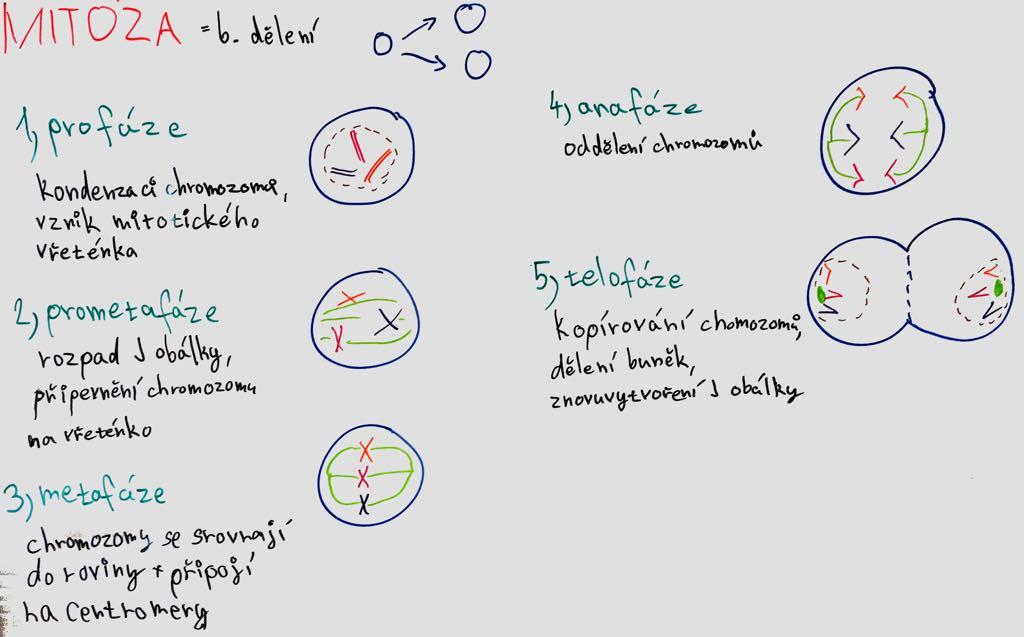 MITÓZA = b. dělení
1, profáze
kondenzací chromozomů,
vznik mitotického
vřeténka
2, prometafáze
rozpad J obálky,
připernění chromozomu
na vřeténko
3, metafáze
chromozomy se srovnají
do roviny + připojí
na centromery
4, anafáze
oddělení chromozomů
5, telofáze
kopírování chomozomů,
dělení buněk,
znovuvytvoření J obálky